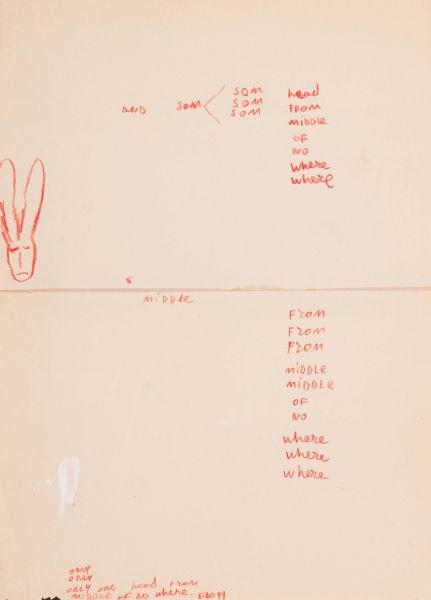 SOM head
AND SOM SOM FROM
SOM MIDDLE
OF
NO
where
where
MIDDLE
FROM
FROM
FROM
MIDDLE
MIDDLE
OF
NO
where
where
where
ONLY
ONLY one head From
MIDDLE OF NO where.